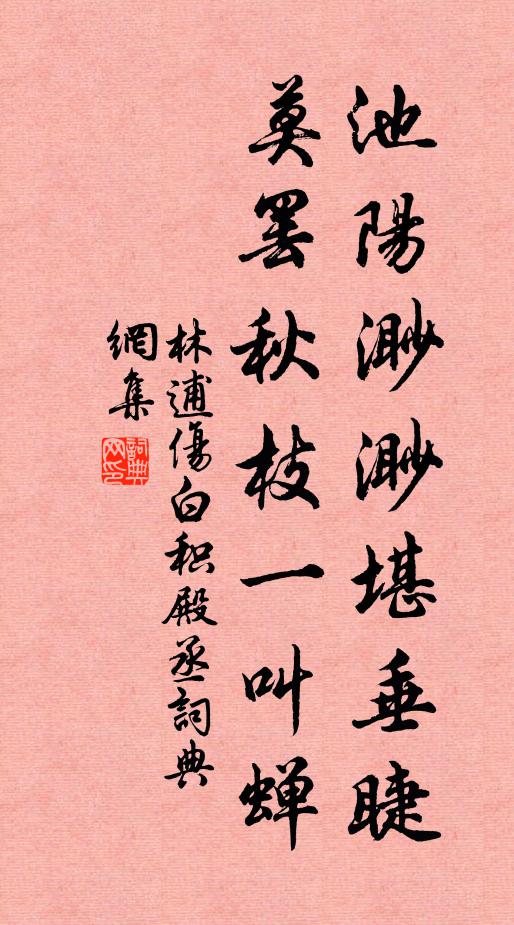 池陽渺渺堪垂睫
莫罢秋枝一叫蝉
林逋傷白积殿丞詞典
網集
詞典網印